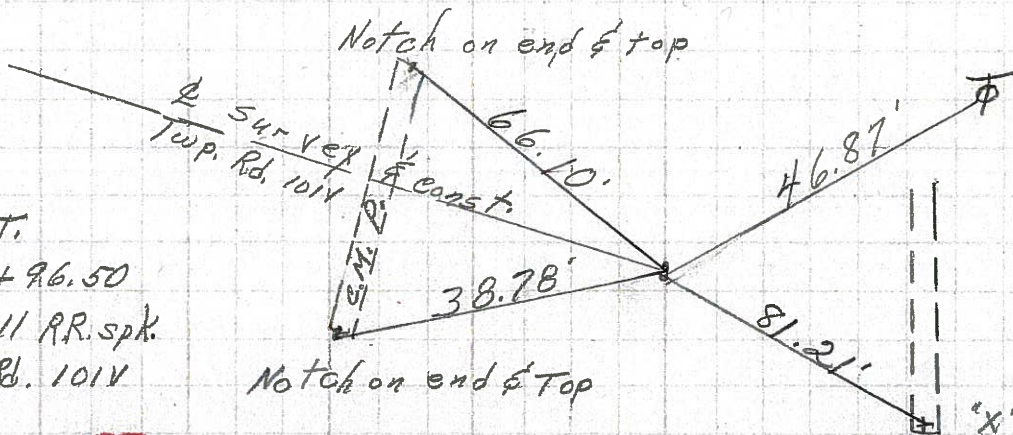 Notch on end & top
℄ Survey & Const.
Twp. Rd. 101V
66.10'
46.87'
C.M.P.
38.78'
81.21'
T.
+ 96.50
RR. spk.
Rd. 101V
Notch on end & Top
"X"